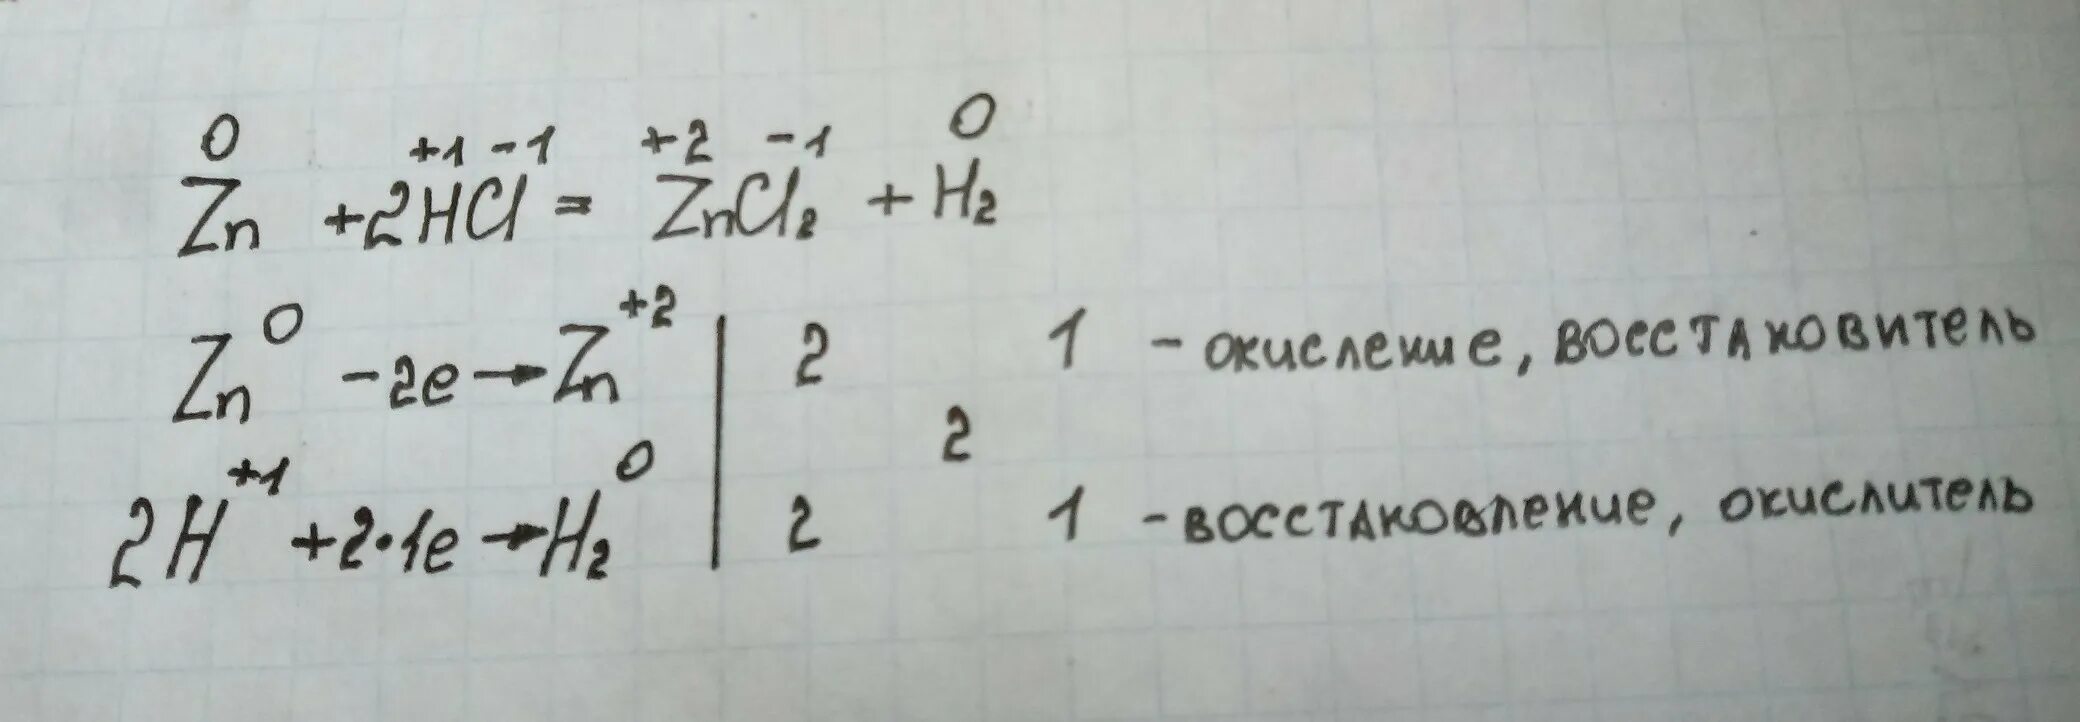 0 +1 -1 +2 -1 0
Zn + 2HCl = ZnCl₂ + H₂
Zn⁰ - 2e → Zn⁺² | 2 1 - окисление, восстановитель
2
2H⁺¹ + 2·1e → H₂⁰ | 2 1 - восстановление, окислитель